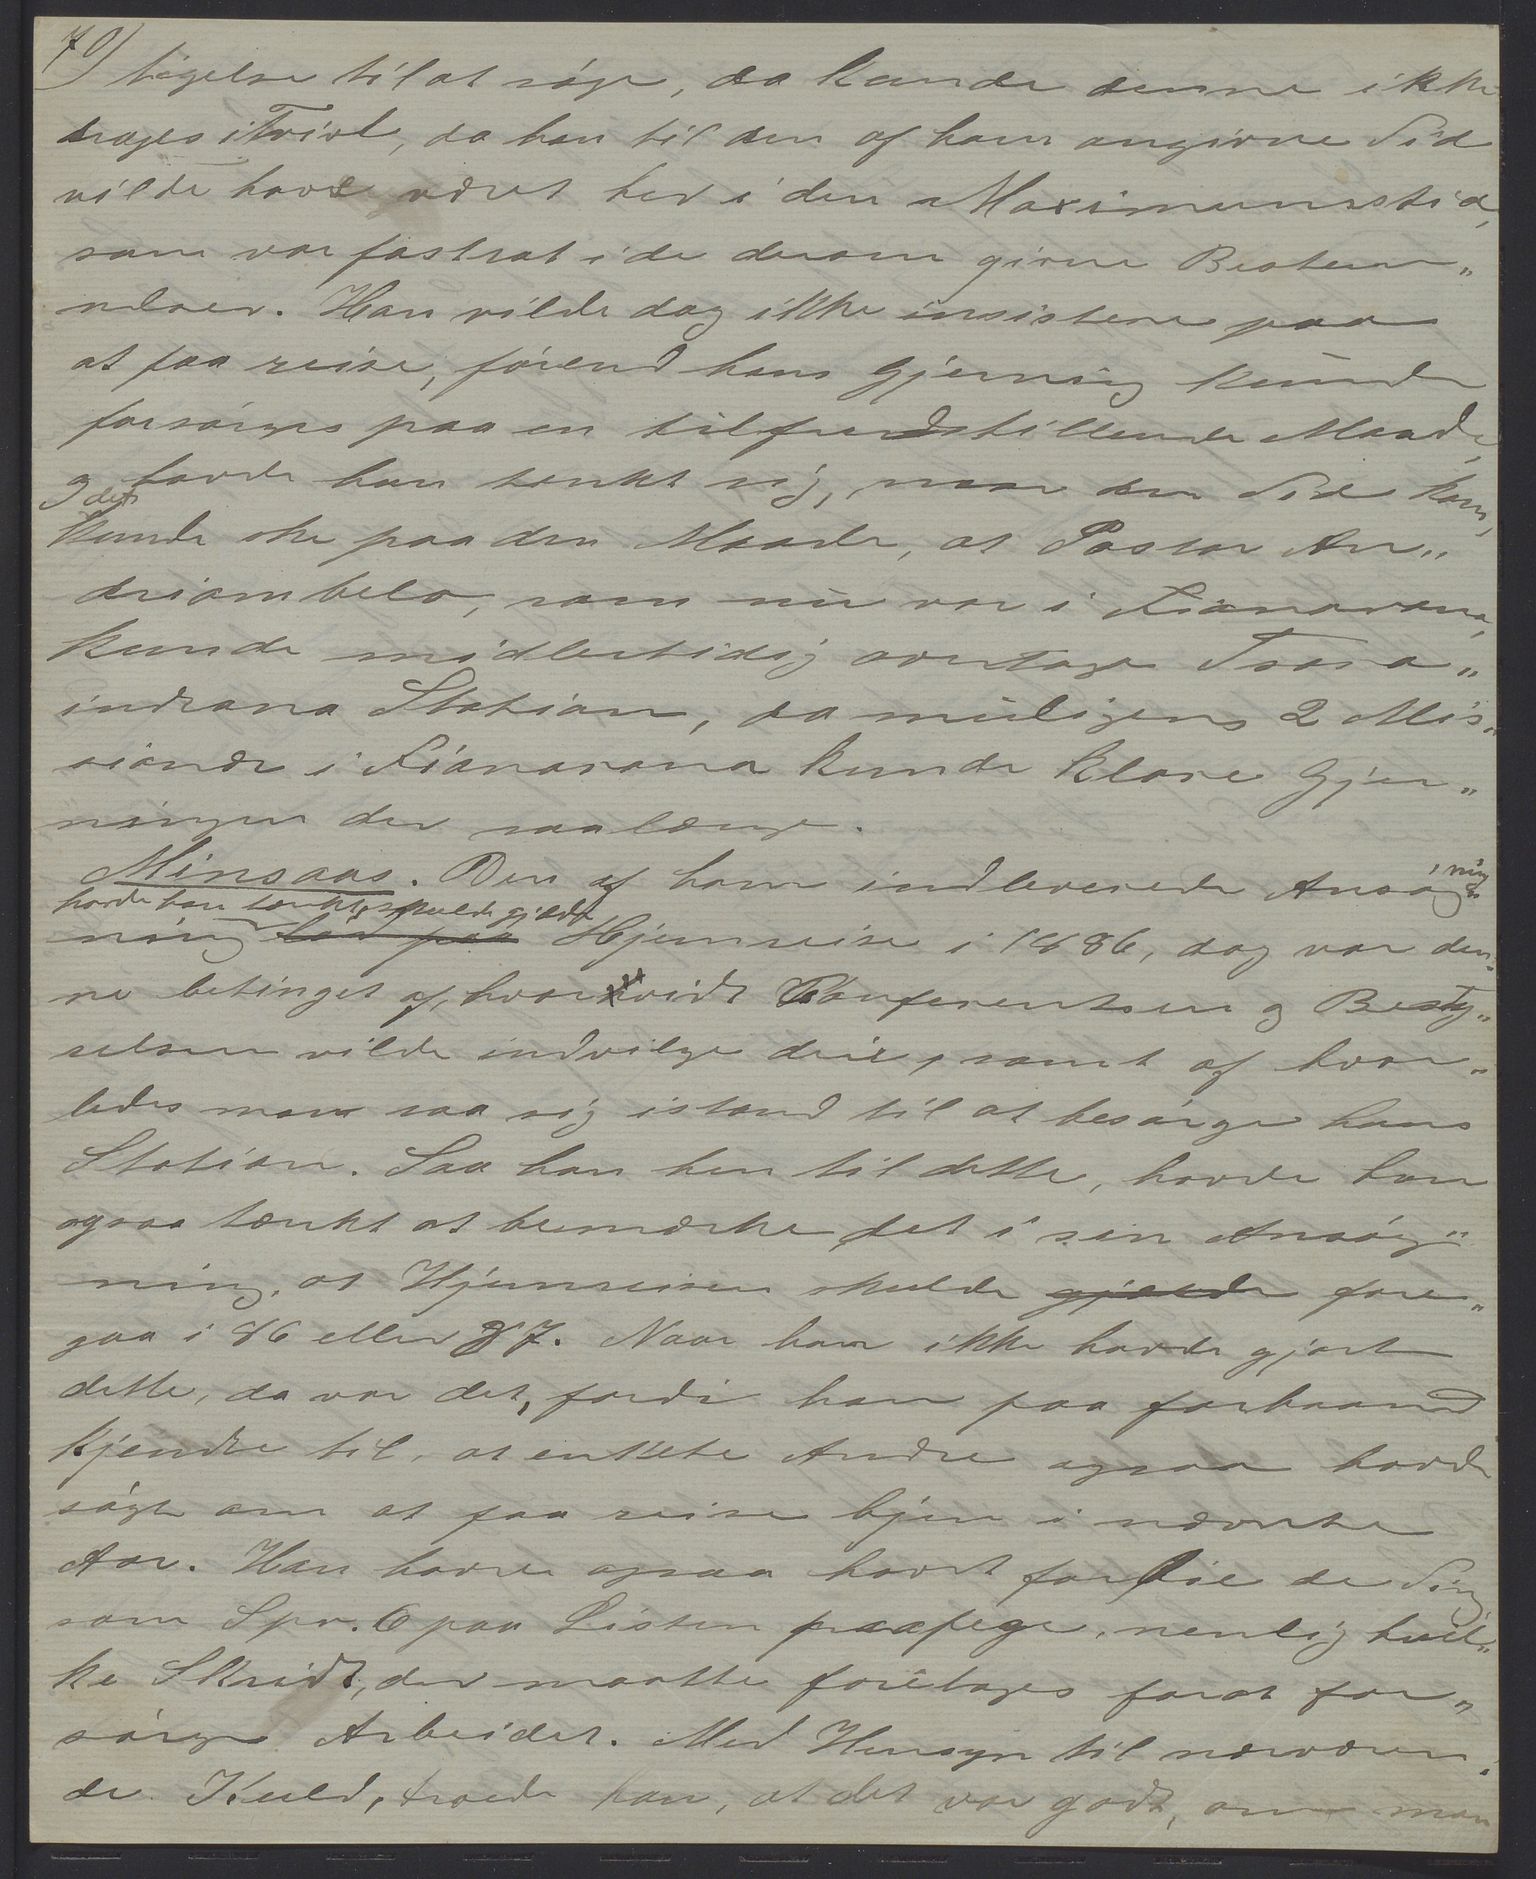 70)
tigelse til at søge, da kunde denne ikke
drages i Tvivl, da han til den af ham angivne Tid
vilde have været her i den Maximumstid,
som var fastsat i de derom givne Bestem„
melser. Han vilde dog ikke insistere paa
at faa reise, førend hans Gjerning kunde
forsørges paa en tilfredsstillende Maade,
og havde han tænkt sig, naar den Tid kom,
det
kunde ske paa den Maade, at Pastor An„
driambelo, som nu var i Fianarana,
kunde midlertidig overtage Tsara„
indrana Station, da muligens 2 Mis„
sionær i Fianarana kunde klare Gjer„
ningen der saalænge.
Minsaas. Den af ham indleverede Ansøg„
ning
havde han tænkt, skulde gjælde
ning lød paa Hjemreise i 1886, dog var den„
ne betinget af, hvorvidt Konferentsen og Besty„
relsen vilde indvilge deri, samt af hvor„
ledes man saa sig istand til at besørge hans
Station. Saa han hen til dette, havde han
ogsaa tænkt at bemærke det i sin Ansøg„
ning, at Hjemreisen skulde gjælde fore„
gaa i 86 eller 87. Naar han ikke havde gjort
dette, da var det, fordi han paa forhaand
kjendte til, at enkelte Andre ogsaa havde
søgt om at faa reise hjem i nævnte
Aar. Han havde ogsaa havt for Øie de Ting
som Spr. 6 paa Listen paapege, nemlig hvil„
ke Skridt, der maatte foretages forat for„
sørge Arbeidet. Med Hensyn til nærværen„
de Kuld, troede han, at det var godt, om man